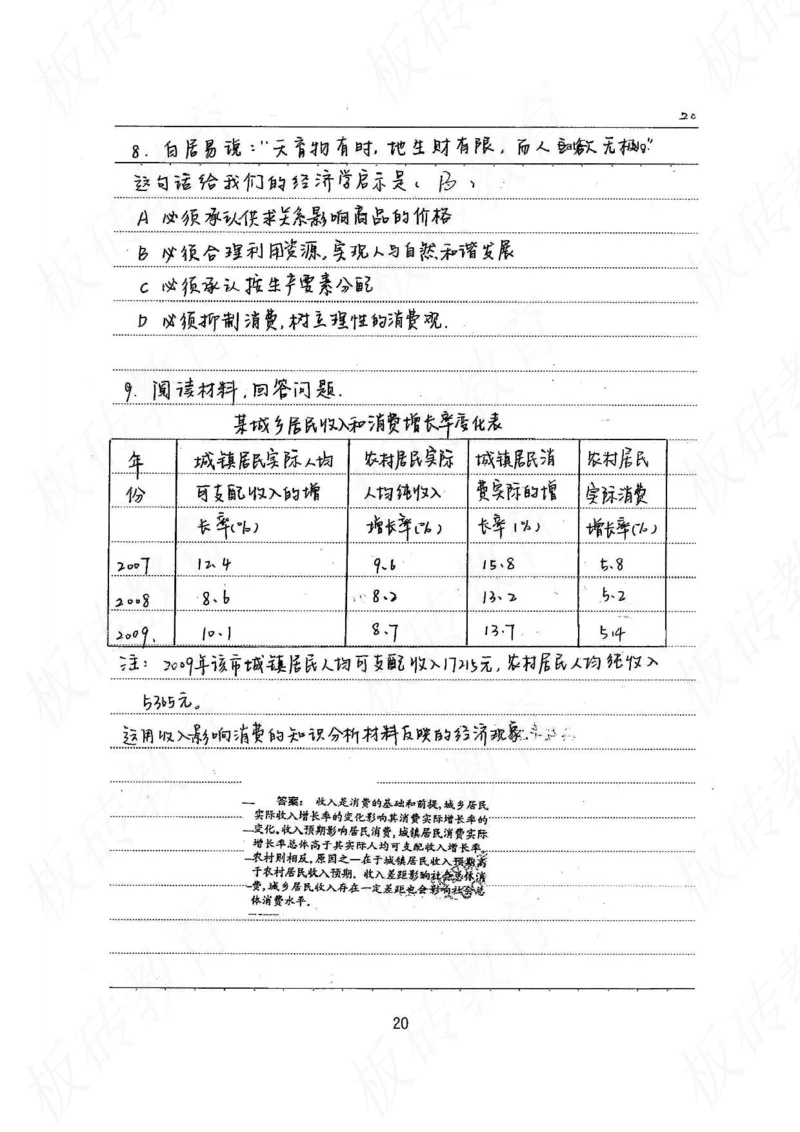 20
8. 白居易说："天育物有时,地生财有限,而人之欲无极。"
这句话给我们的经济学启示是( B )
A 必须承认供求关系影响商品的价格
B 必须合理利用资源,实现人与自然和谐发展
C 必须承认按生产要素分配
D 必须抑制消费,树立理性的消费观.
9. 阅读材料,回答问题.
某城乡居民收入和消费增长率变化表
年 城镇居民实际人均 农村居民实际 城镇居民消 农村居民
份 可支配收入的增 人均纯收入 费实际的增 实际消费
长率(%) 增长率(%) 长率(%) 增长率(%)
2007 12.4 9.6 15.8 5.8
2008 8.6 8.2 13.2 5.2
2009. 10.1 8.7 13.7 5.4
注: 2009年该市城镇居民人均可支配收入17215元,农村居民人均纯收入
5365元。
运用收入影响消费的知识分析材料反映的经济现象.
答案： 收入是消费的基础和前提,城乡居民
实际收入增长率的变化影响其消费实际增长率的
变化。收入预期影响居民消费,城镇居民消费实际
增长率总体高于其实际人均可支配收入增长率,
农村则相反,原因之一在于城镇居民收入预期高
于农村居民收入预期。收入差距影响社会总体消
费,城乡居民收入存在一定差距也会影响社会总
体消费水平。
20
板砖教育